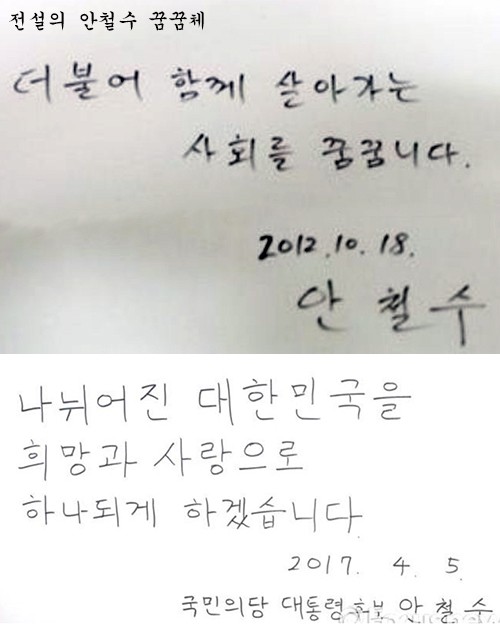 전설의 안철수 꿈꿈체
더불어 함께 살아가는
사회를 꿈꿈니다.
2012.10.18.
안철수
나뉘어진 대한민국을
희망과 사랑으로
하나되게 하겠습니다
2017. 4. 5
국민의당 대통령후보 안철수